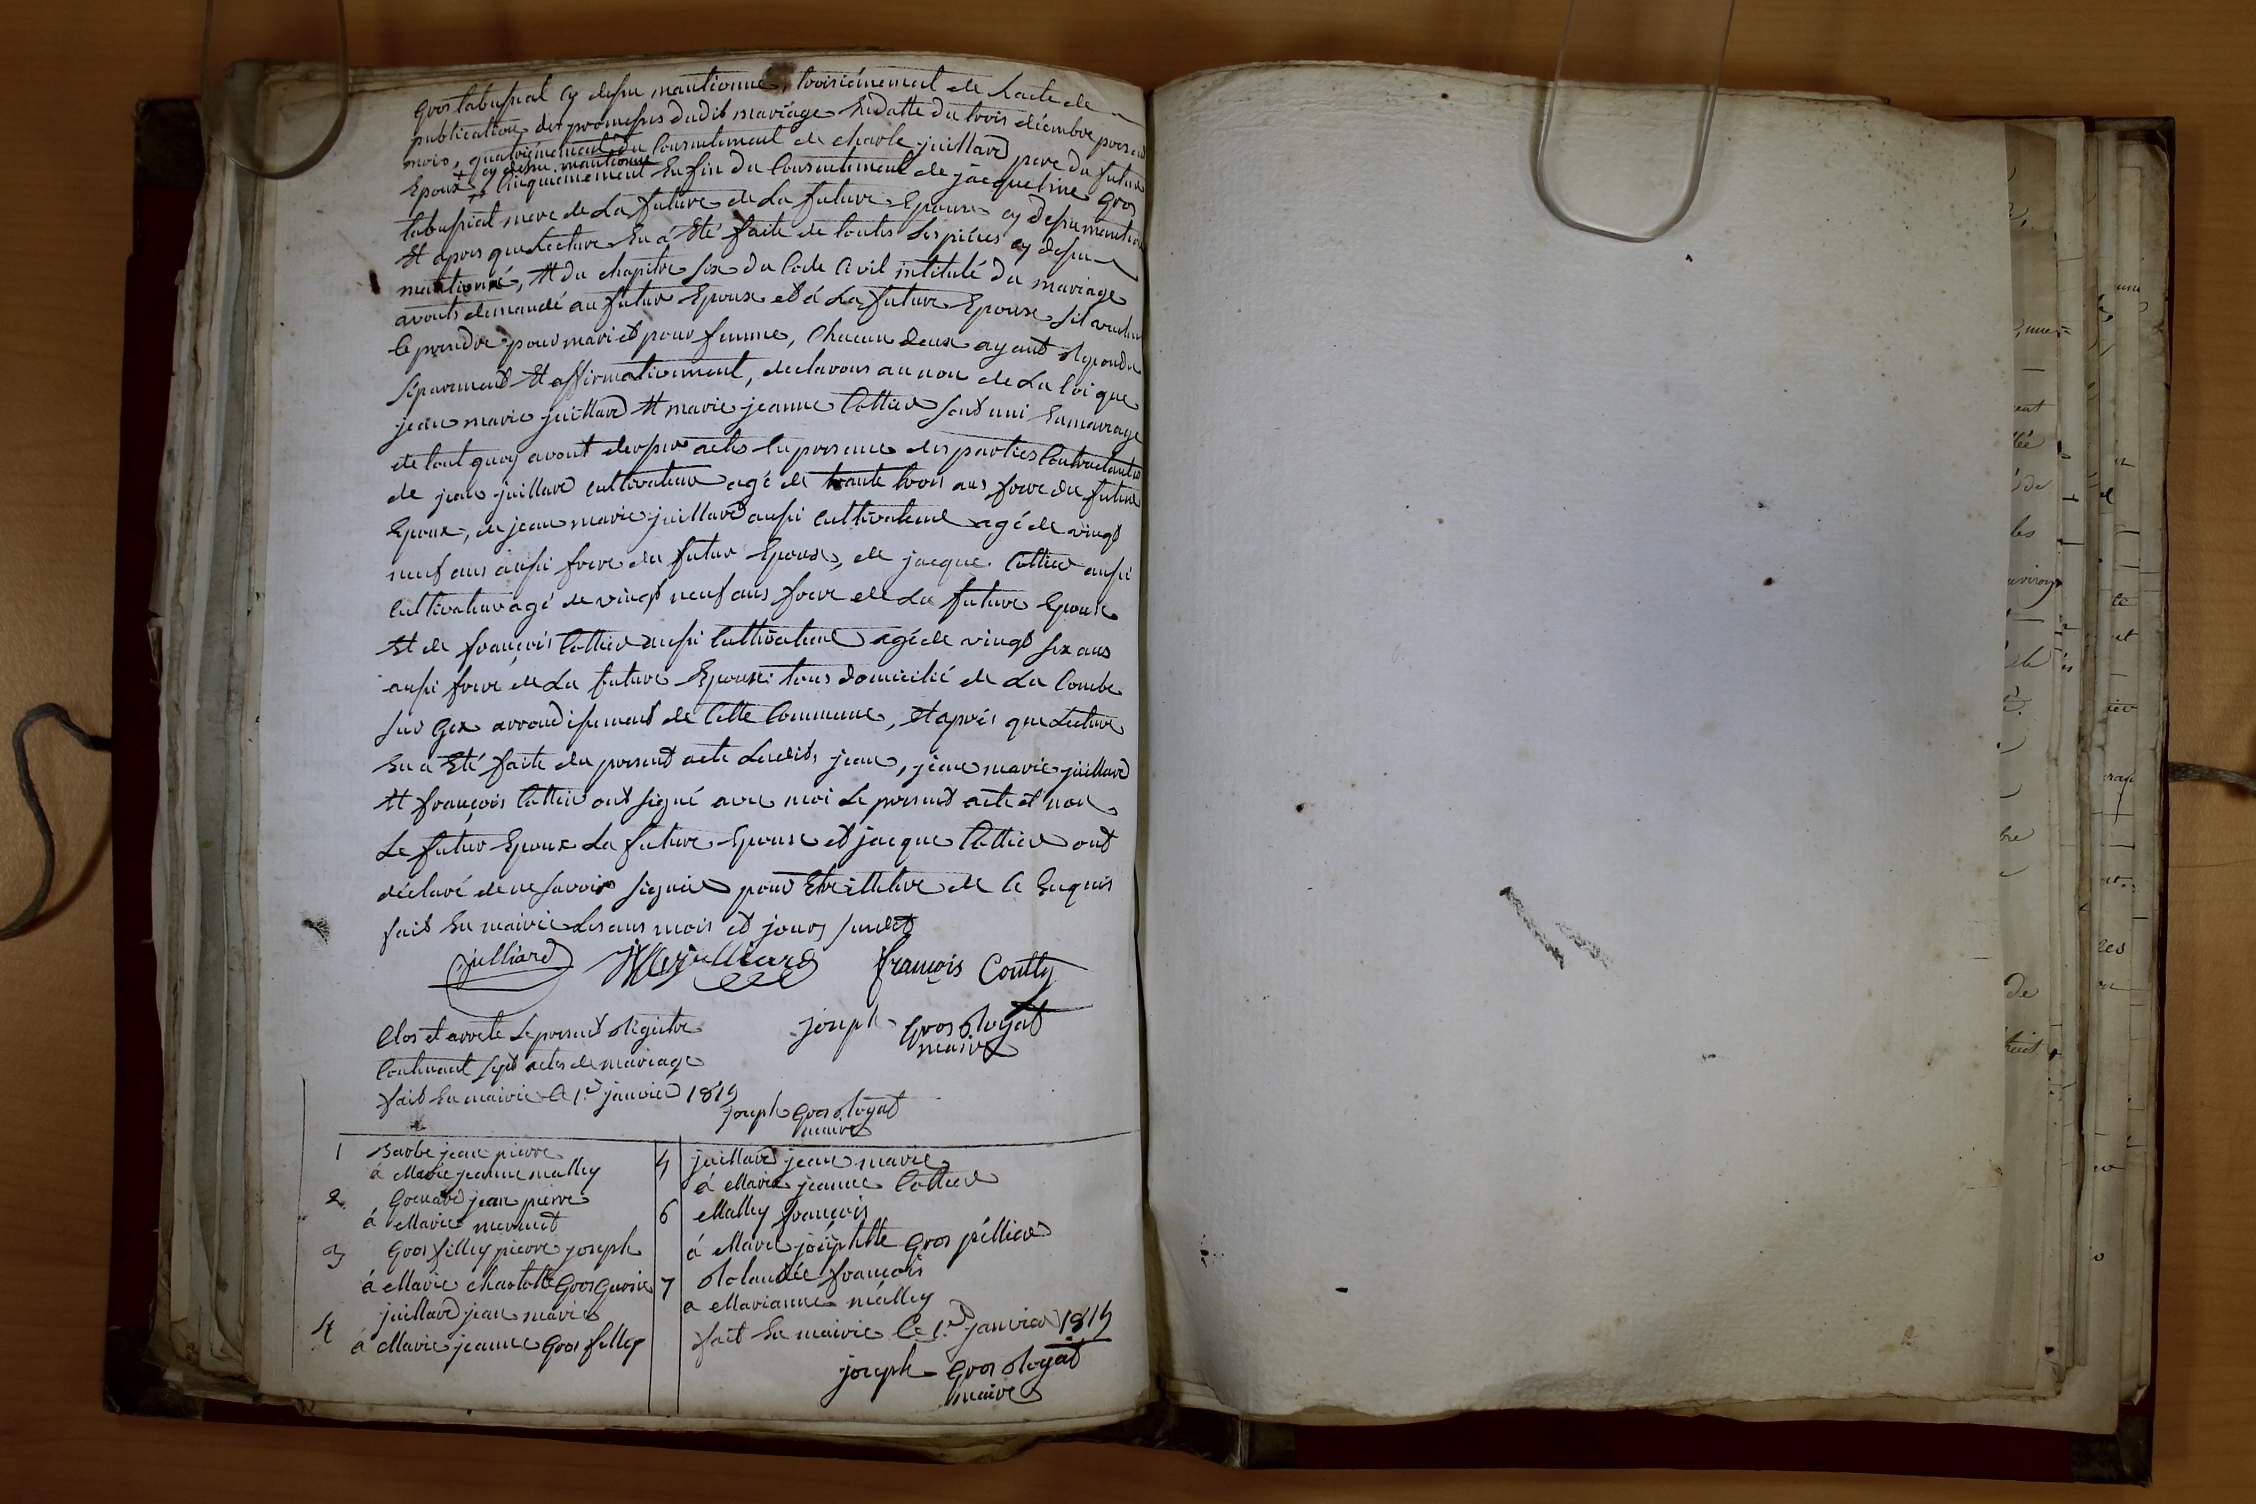 Gros tabussiat cy dessu mantionné, troisiémement de Lacte de
publication des promesses dudit mariage En datte du trois décembre present
mois, quatriémement du Consentement de charle juillard pere du futur
cy dessu mantionné
Epoux, Cinquiemement Enfin du Consentement de jacqueline Gros
tabussiat mere de La future de La future Epouse cy dessu mantion
Et apres que Lecture En a Eté faite de toutes Les piéces cy dessu
mantionné, Et du chapitre six du Code Civil intitulé du mariage
avont demandé au futur Epoux et á La future Epouse s'il veulen
ce prendre pour mari et pour femme, Chacun deux ayant repondu
séparement Et affirmativement, declarons au non de La loi que
jean marie juillard Et marie jeanne Cottier sont uni En mariage
de tout quoy avont dressé acte En presence des parties Contractantes
de jean juillard cultivateur agé de trante trois ans frere du futur
Epoux, de jean marie juillard aussi Cultivateur agé de vingt
neuf ans aussi frere du futur Epoux, de jacque Cottier aussi
Cultivateur agé de vingt neuf ans frere de La future Epouse
Et de françois Cottier aussi Cultivateur agé de vingt six ans
aussi frere de La future Epouse tous domicilié de La Combe
sur Gex arrondissement de Cette Commune, Et aprés que Lecture
En a Eté faite du present acte Lesdits jean, jean marie juillard
Et françois Cottier ont signé avec moi Le present acte et non
Le futur Epoux La future Epouse et jacque Cottier ont
déclaré de ne savoir signer pour Etre illetere de Ce Enquis
fait En mairie Les ans mois et jours susdit
julliard JM julliard françois Coutty
joseph Gros Royat
maire
Clos et arrete Le present Régistre
Contenant sept actes de mariage
fait En mairie Ce 1er janvier 1815
joseph Gros Royat
maire
1 Barbe jean pierre
á Marie jeanne malley
2 Grenard jean pierre
á Marie mermet
3 Gros filley pierre joseph
á Marie charlotte Gros Gurin
4 juillard jean marie
á Marie jeanne Gros filley
5 juillard jean marie
á Marie jeanne Cottier
6 Malley françois
á Marie joséphtte Gros péllier
7 Rolandéé françois
a Marianne malley
fait En mairie Ce 1er janvier 1815
joseph Gros Royat
maire